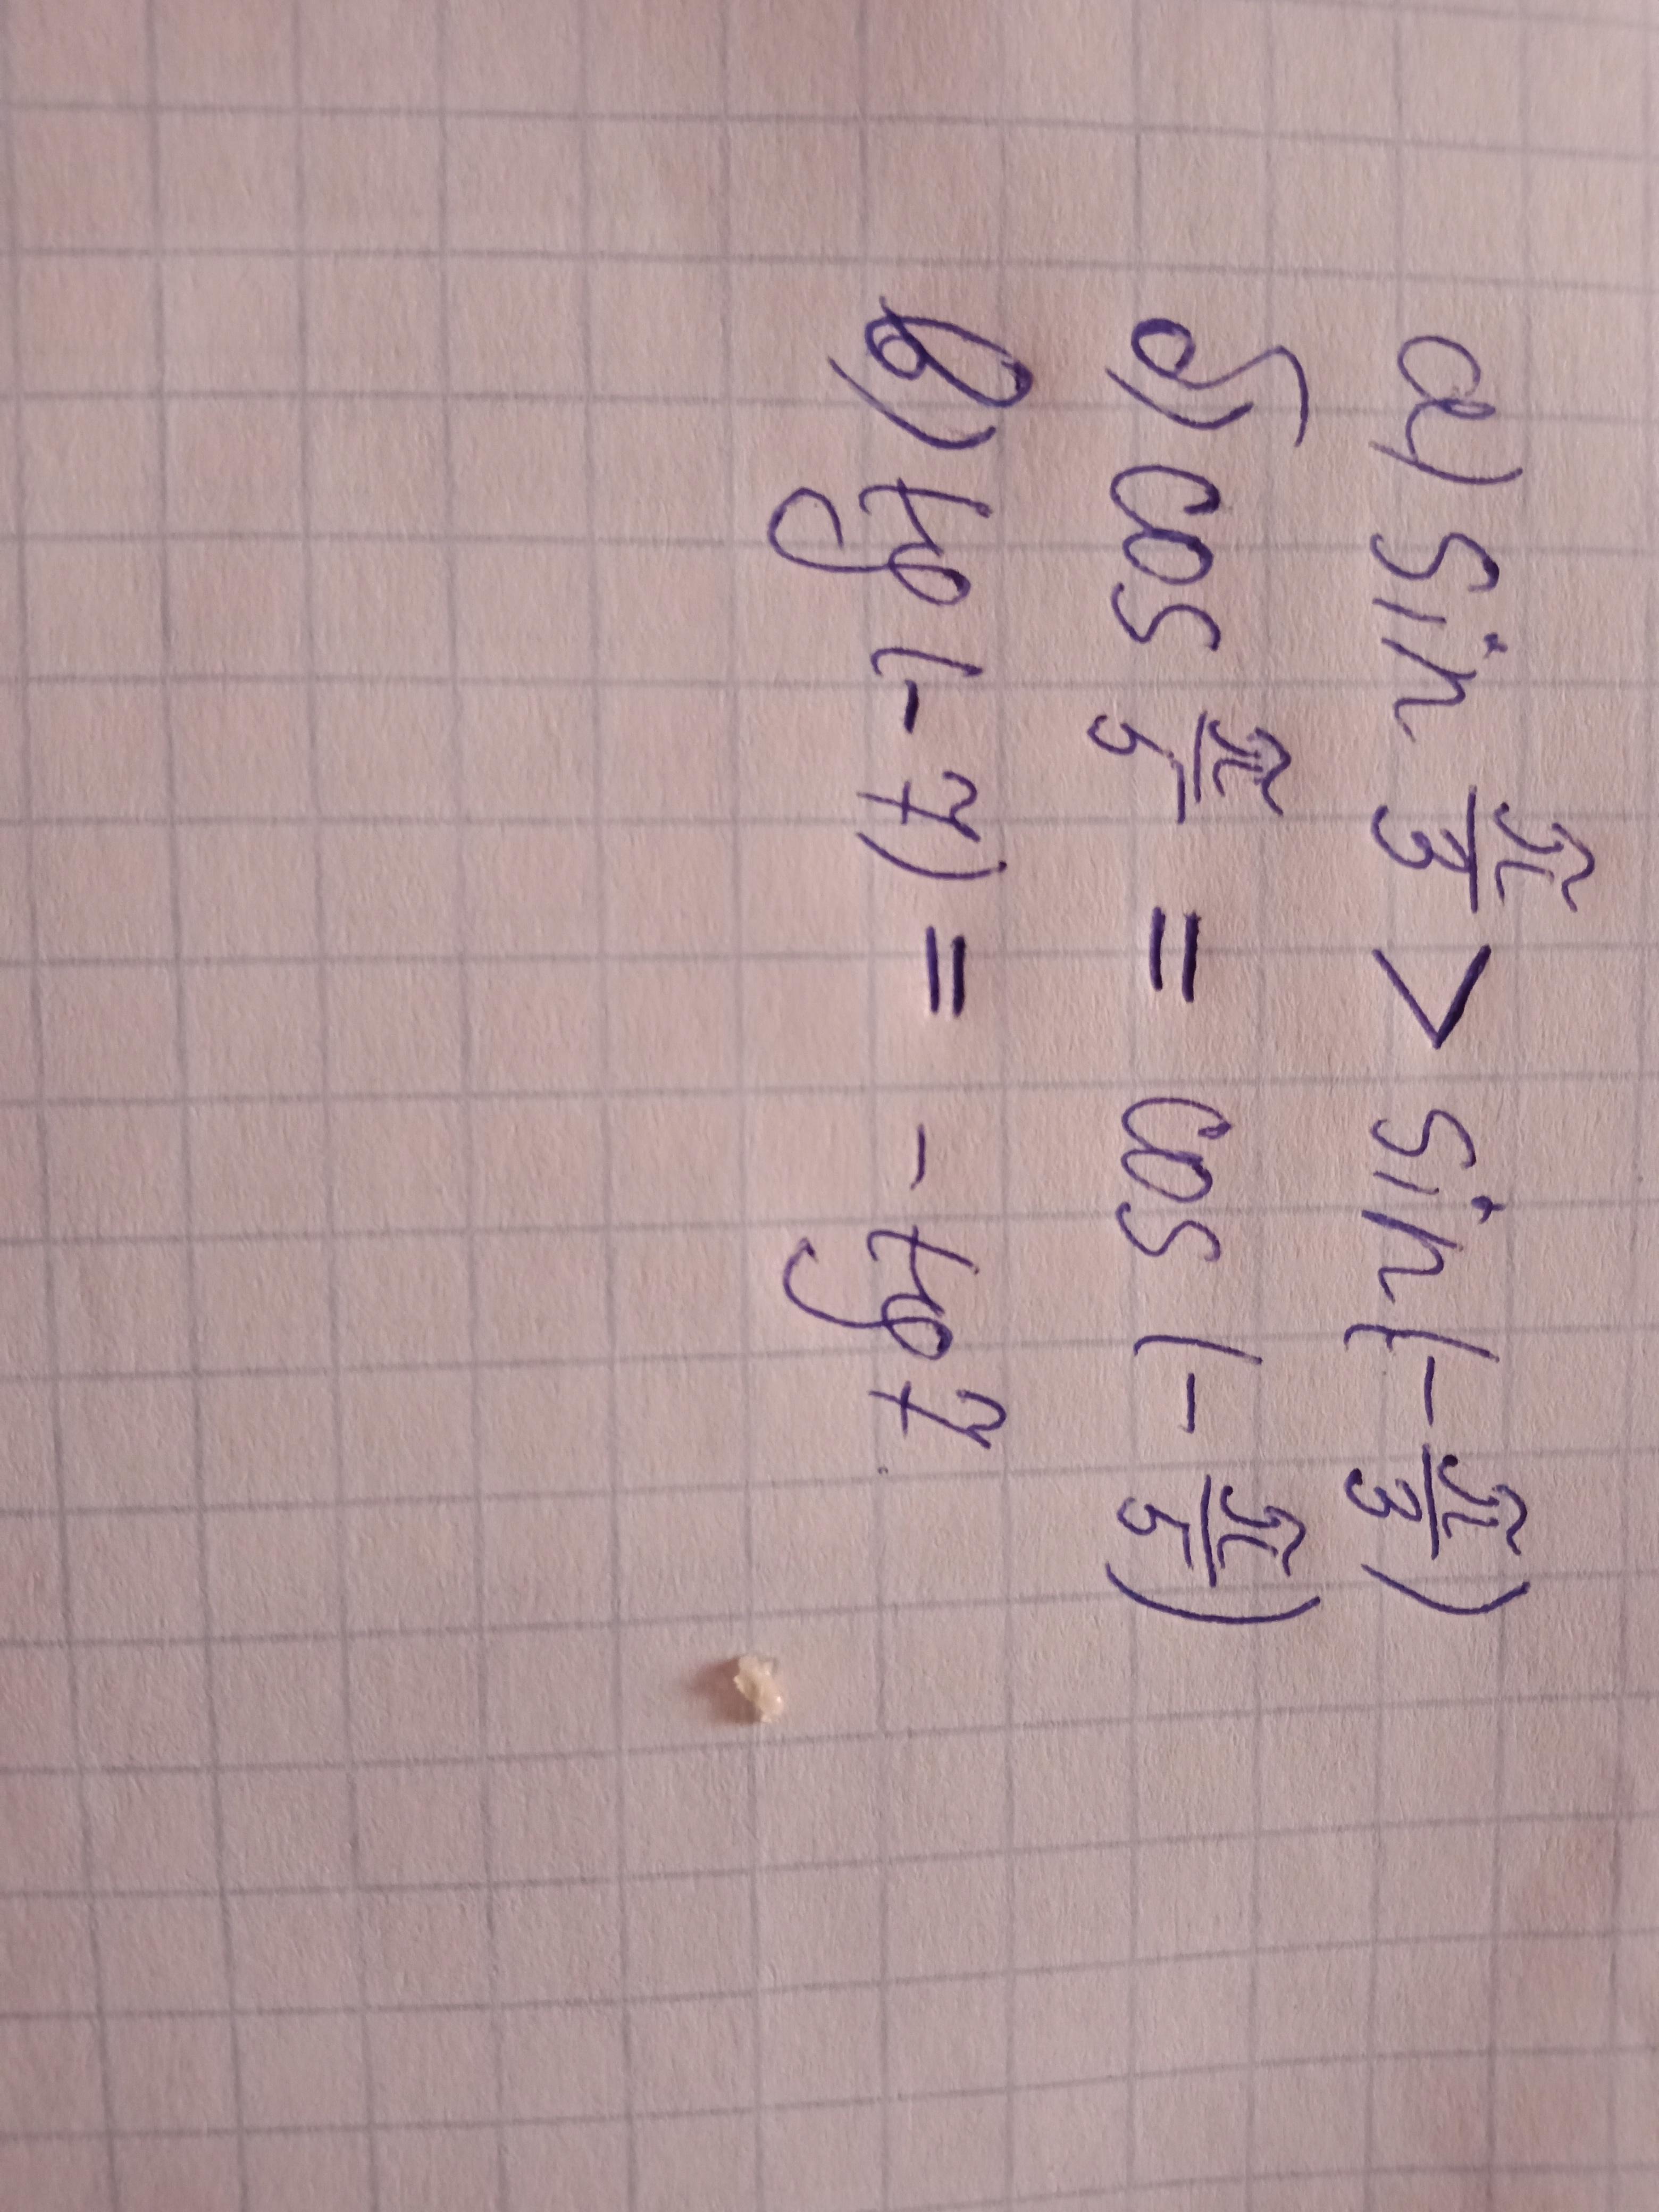 а) sin π/3 > sin(-π/3)
б) cos π/5 = cos(-π/5)
в) tg(-7) = - tg7